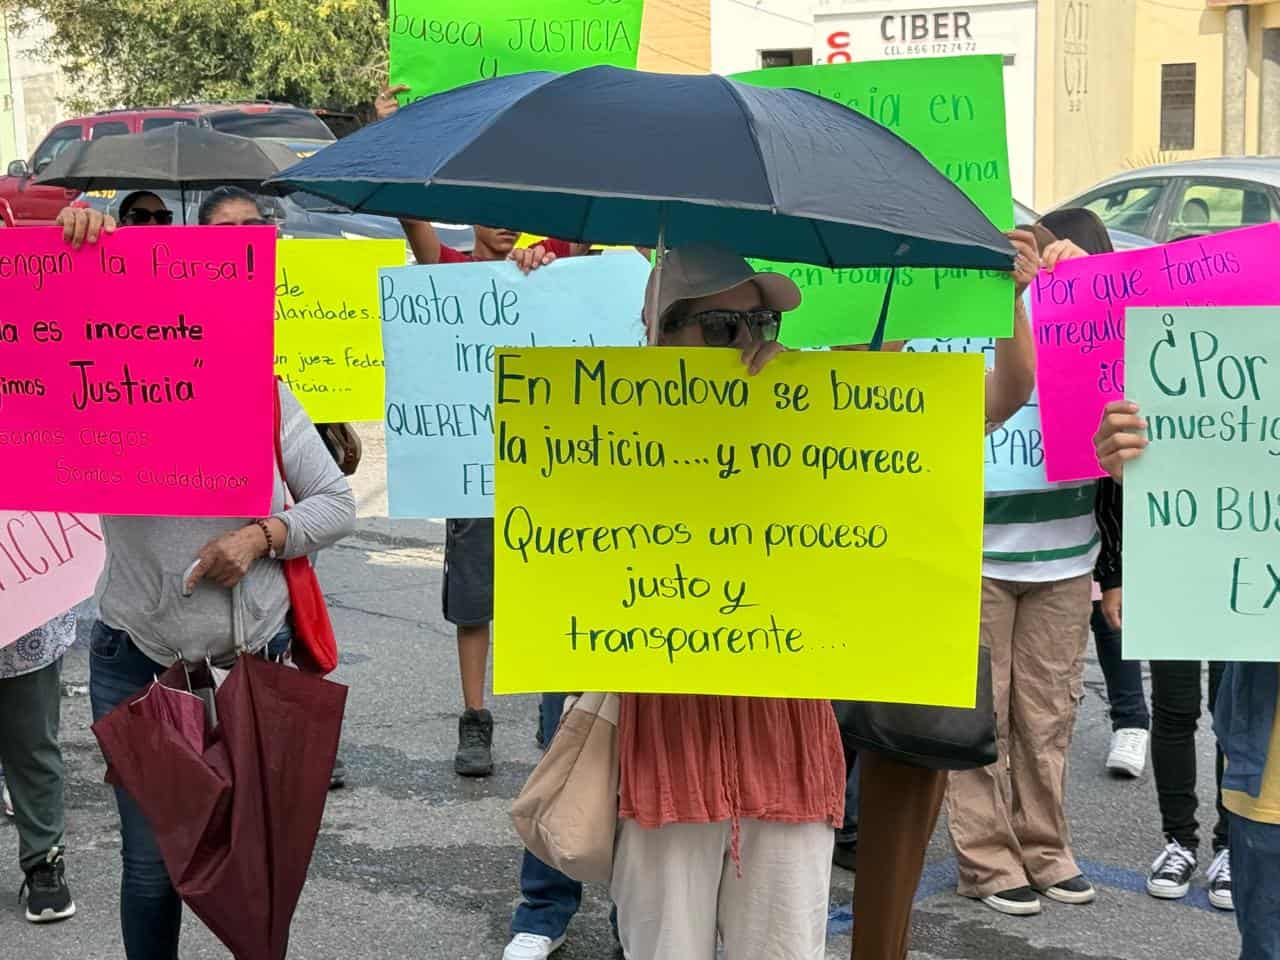 busca JUSTICIA
y
CIBER
CEL. 866 172 74 72
en
una
en todas partes
engan la farsa!
es inocente
Justicia"
somos ciegos
Somos ciudadanos
de
un juez Feder
Basta de
QUEREM
FE
En Monclova se busca
la justicia....y no aparece.
Queremos un proceso
justo y
transparente....
Por que tantas
irregul
¿Por
investig
NO BUS
EX